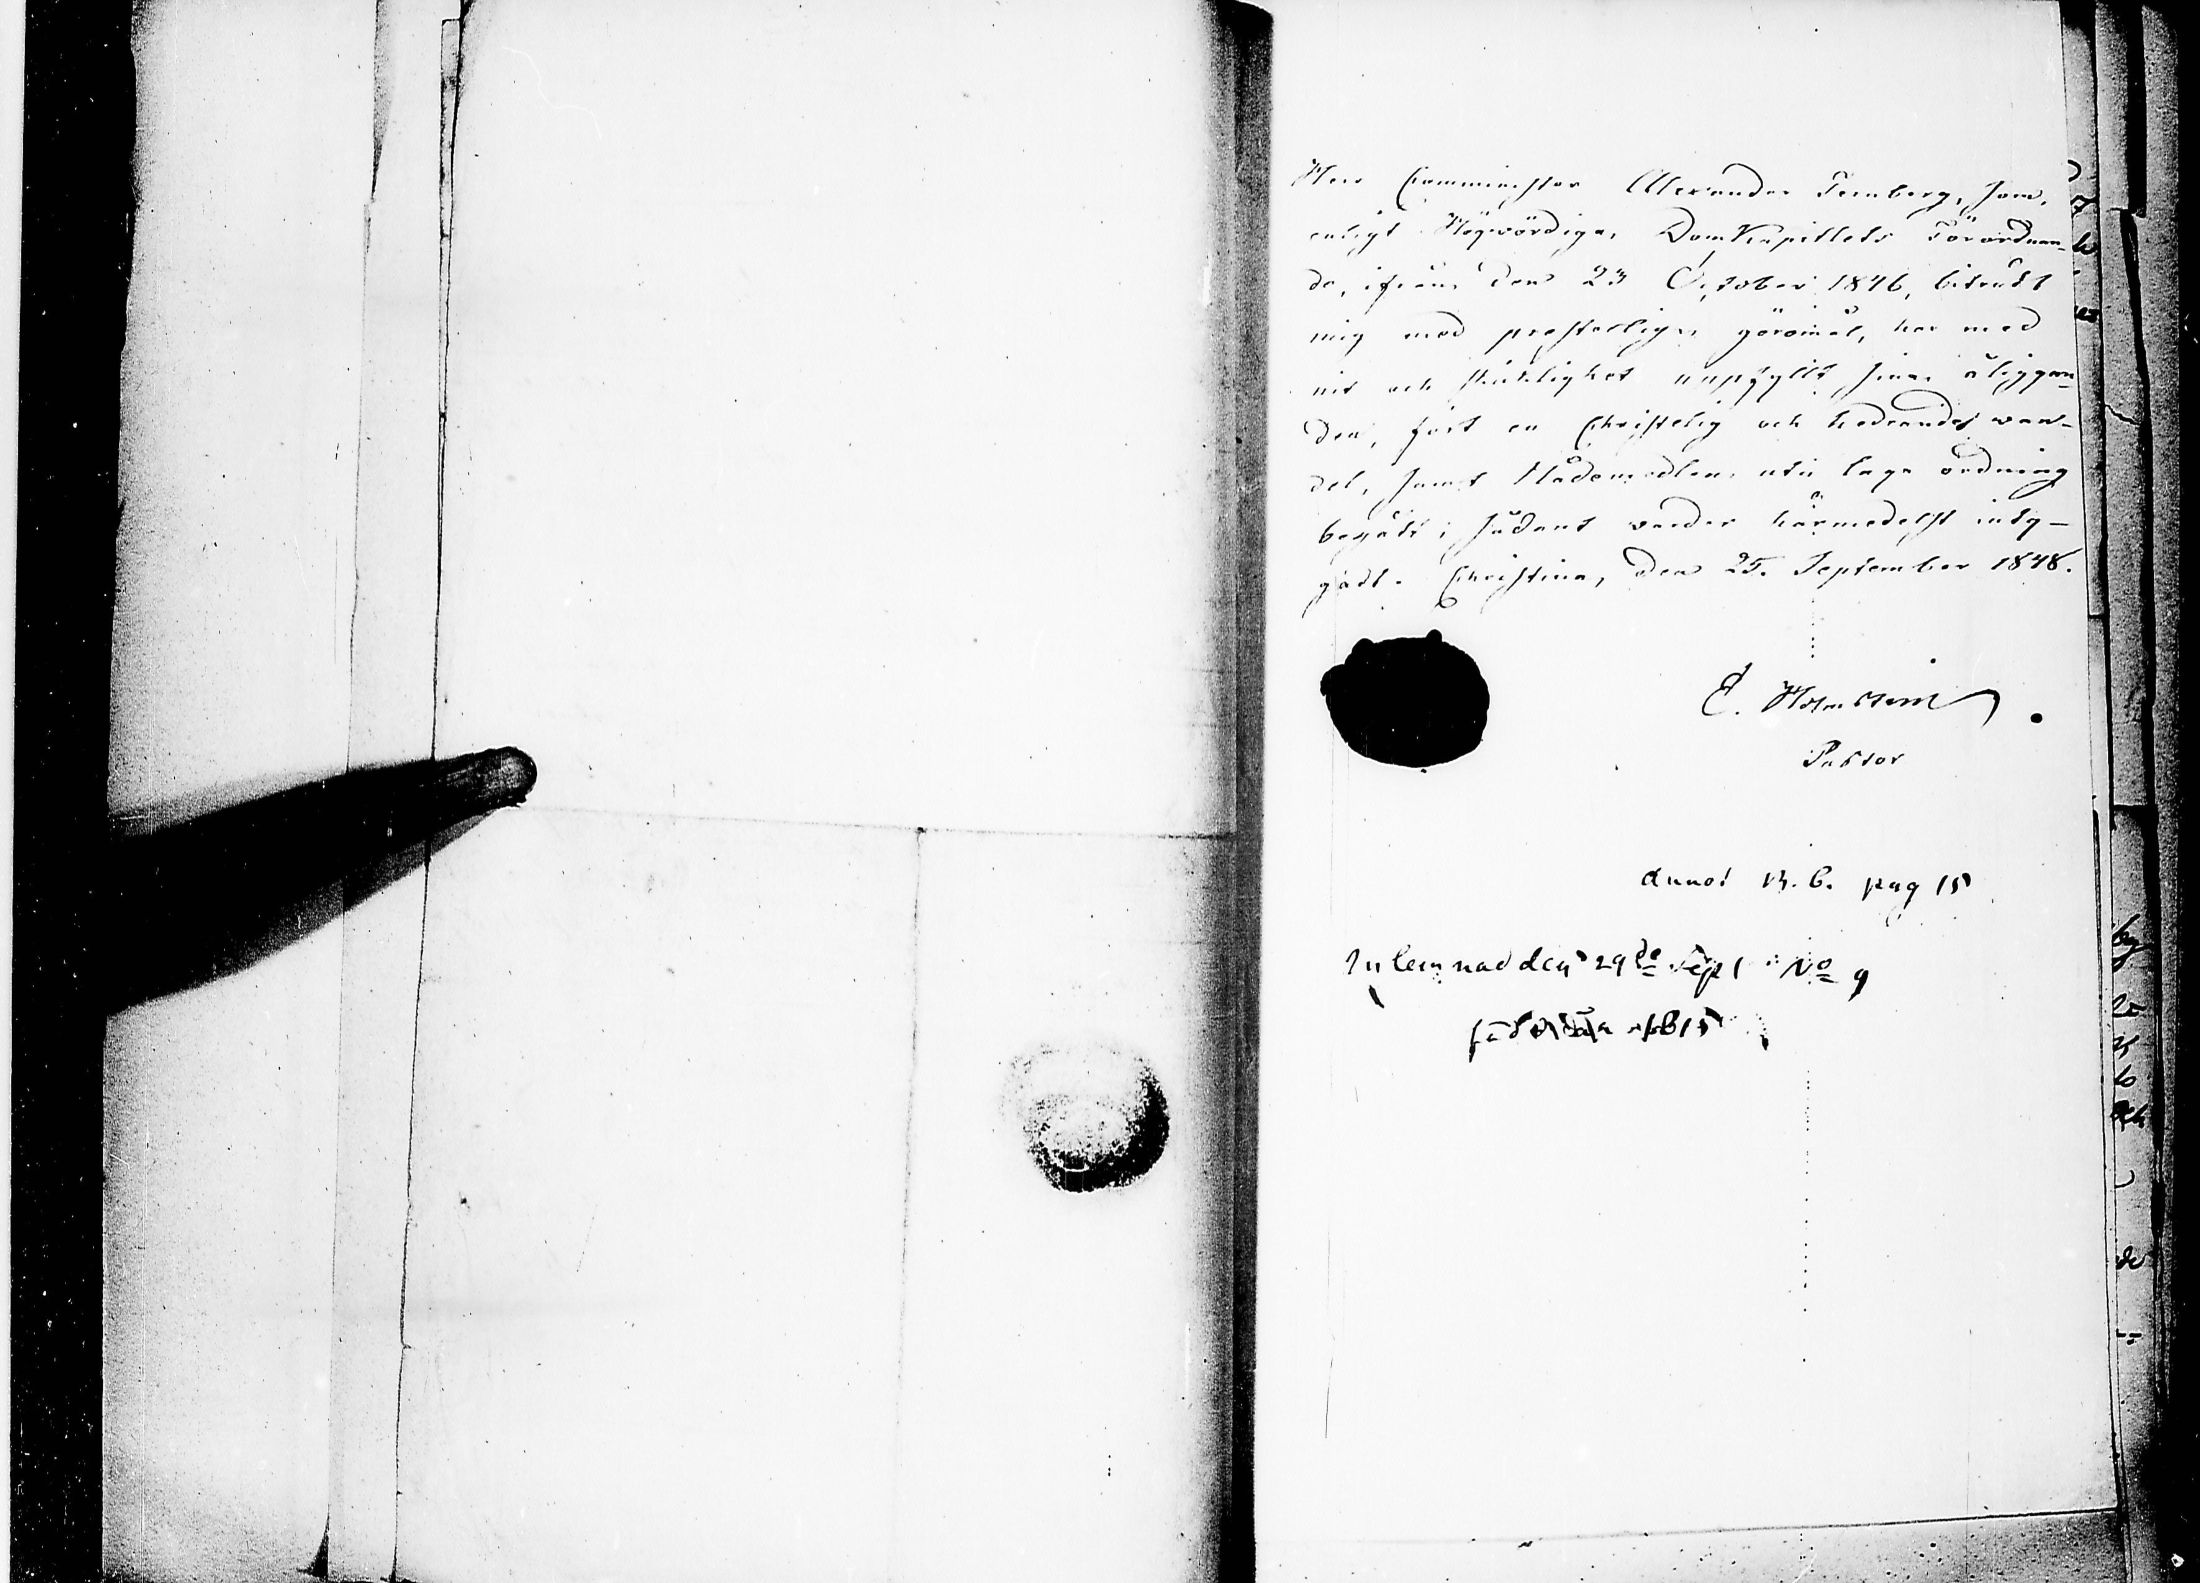 Herr Comminister Alexander Fernberg, som,
enligt Högwördiga DomKapitlets Förordnan-
de, ifrån den 23 October 1846, biträdt
mig med presterliga göromål, har med
nit och skicklighet uppfyllt sina åliggan-
den, fört en Christelig och hedrande wan-
del, samt Nådemedlen uti laga ordning
begått; sådant warder härmedelst inty-
gadt. Christina, den 25. September 1848.
E. Holmstein
Pastor
annot pag 15
Inlemnad den 29de Sept No 9